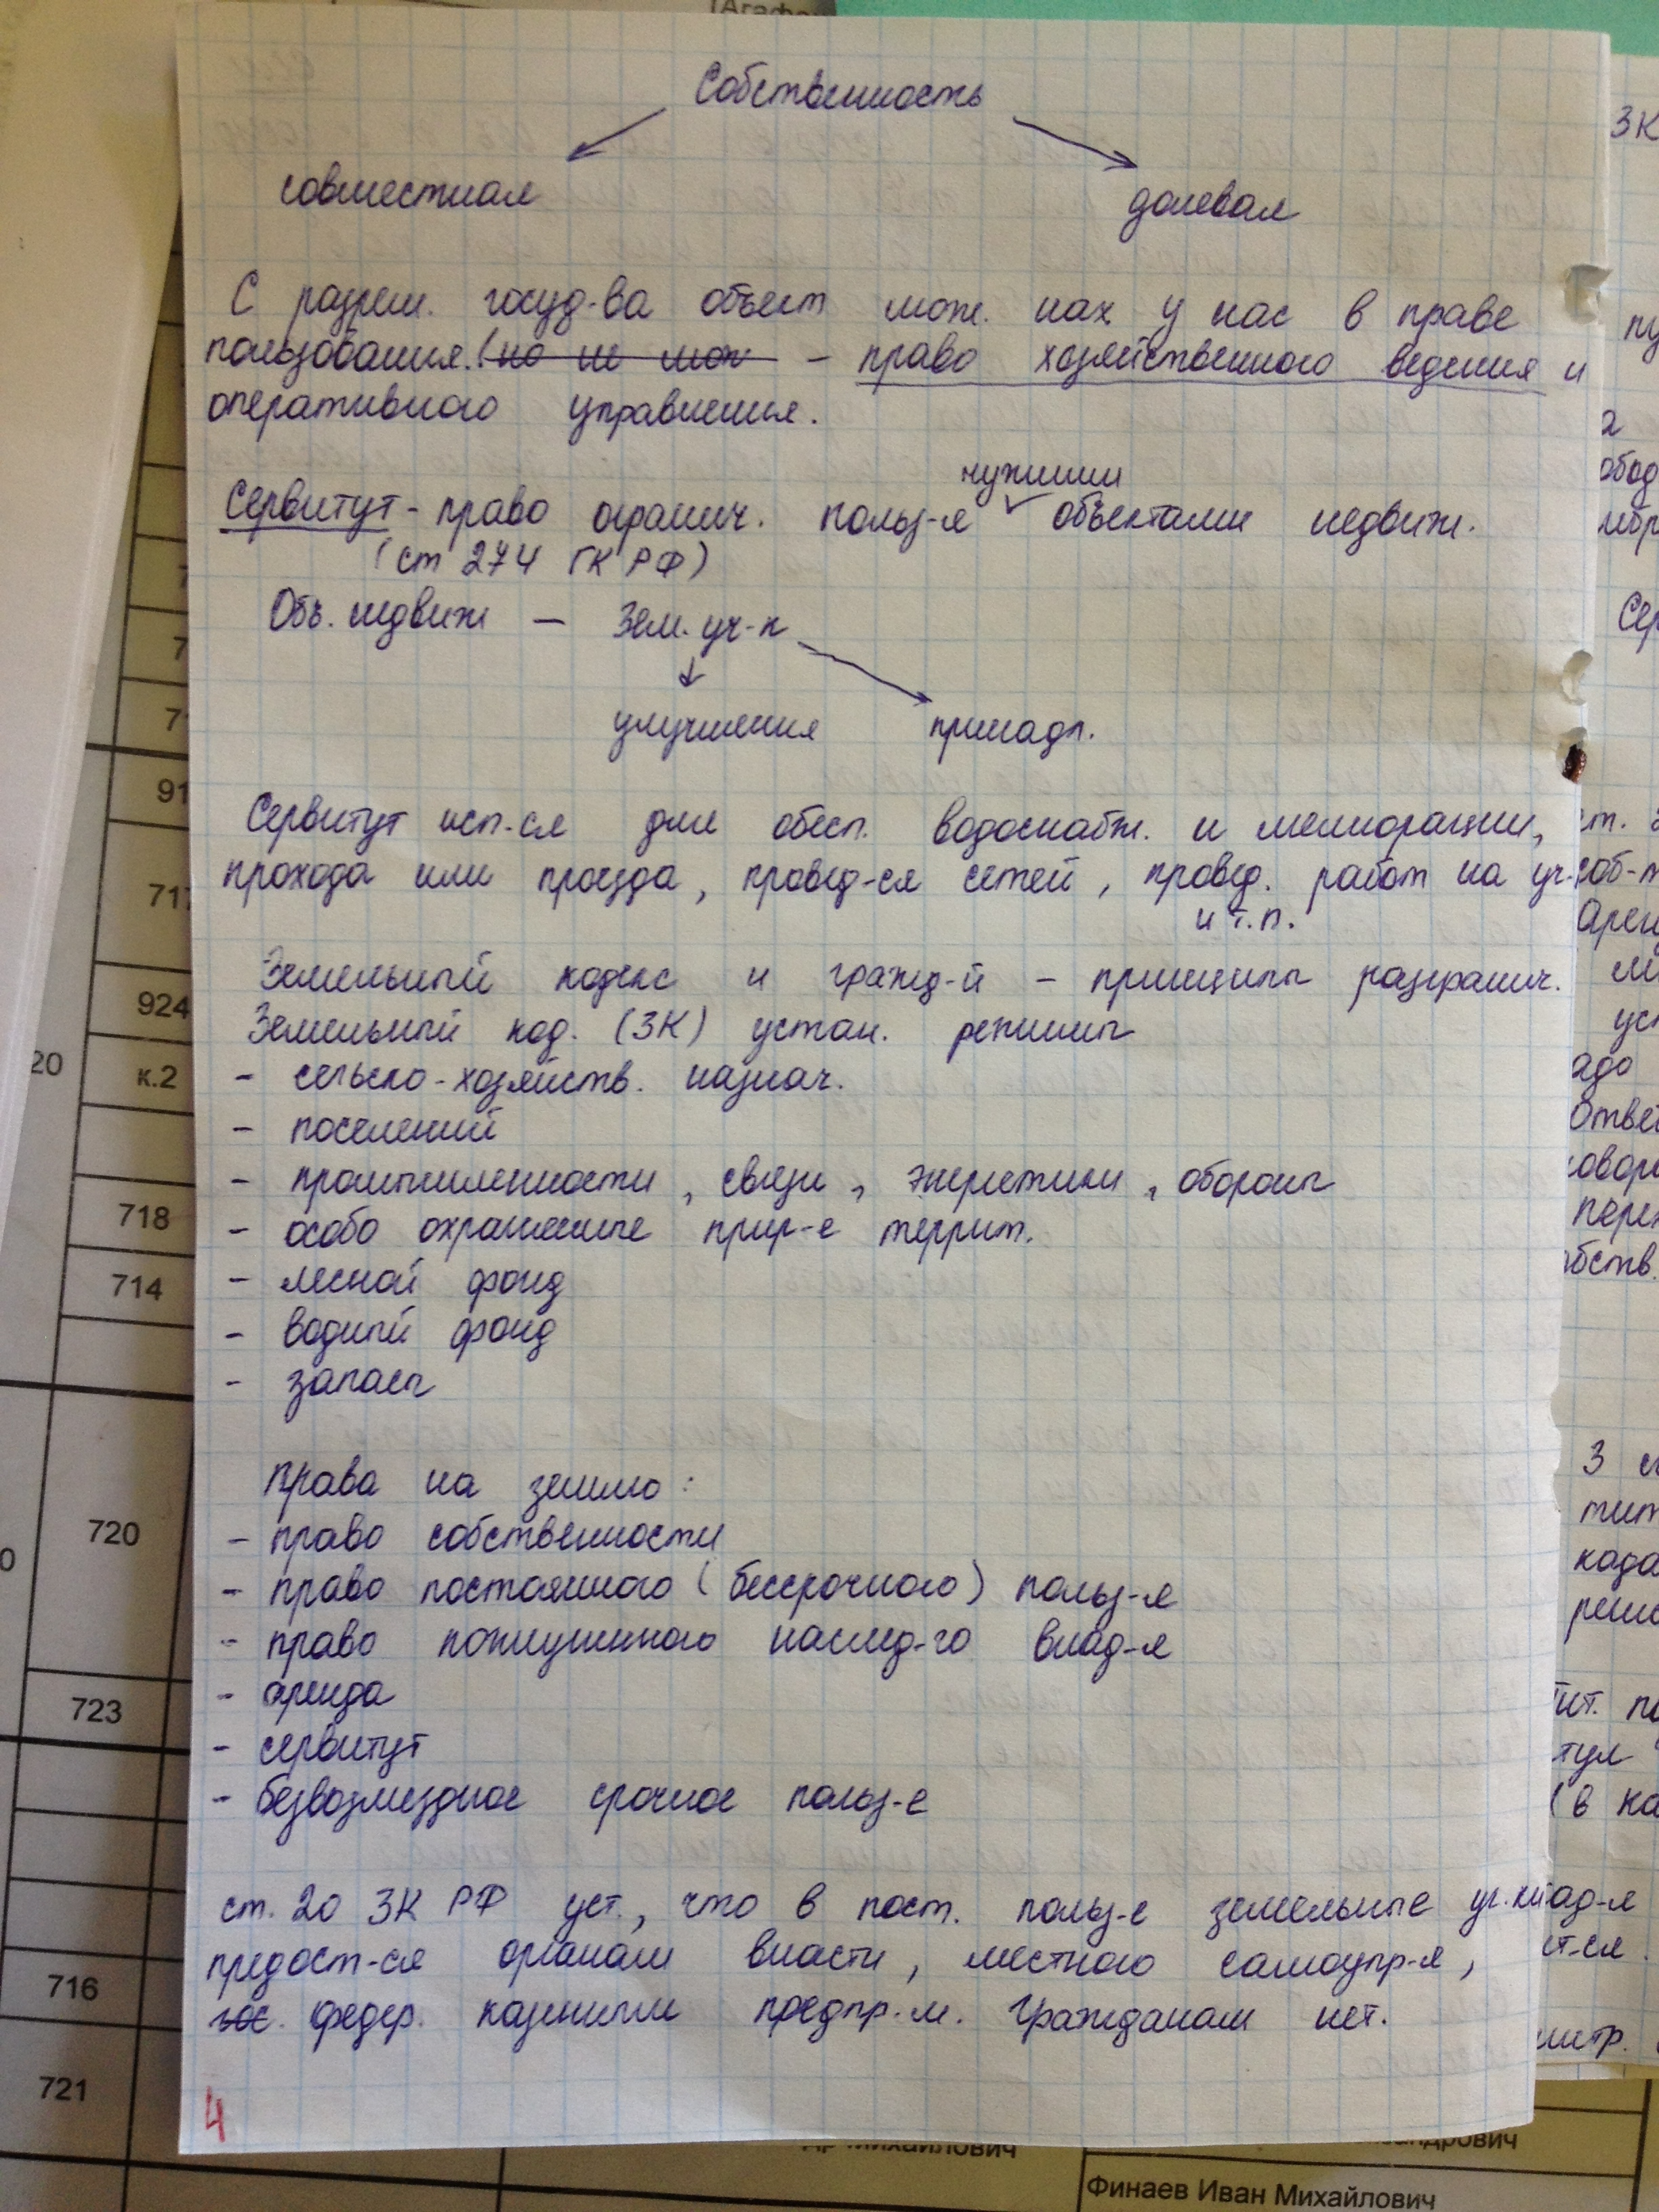 Собственность
совместная долевая
С разреш. госуд-ва объект мож. нах у нас в праве
пользования. (но не мож – право хозяйственного ведения и
оперативного управления.
чужими
Сервитут - право огранич. польз-я объектами недвиж.
(ст 274 ГК РФ)
Объ. недвиж – Зем. уч-к
улучшения принадл.
Сервитут исп-ся для обесп. водоснабж. и мелиорации,
прохода или проезда, провед-ся сетей, провед. работ на уч-
и т.п.
Земельный кодекс и гражд-й – принципы разгранич.
Земельный код. (ЗК) устан. режимы
- сельско-хозяйств. назнач.
- поселений
- промышленности, связи, энергетики, обороны
- особо охраняемые прир-е террит.
- лесной фонд
- водный фонд
- запасы
Права на землю:
- право собственности
- право постоянного (бессрочного) польз-я
- право пожизненного наслед-го влад-я
- аренда
- сервитут
- безвозмездное срочное польз-е
ст. 20 ЗК РФ уст., что в пост. польз-е земельные уч.
предост-ся органам власти, местного самоупр-я,
гос. федер. казенными предпр-м. Гражданам нет.
4
ЗК
Сер
ст.
арен
3
(в ка
91
717
924
20
к.2
718
714
720
723
716
721
Финаев Иван Михайлович